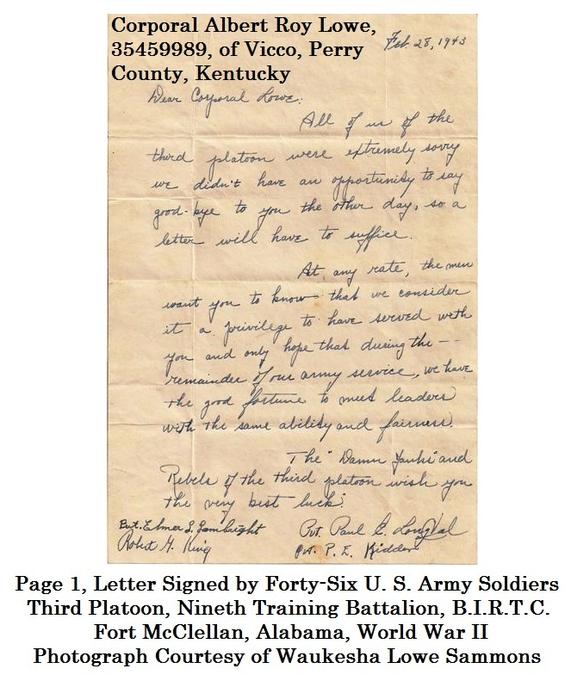 Corporal Albert Roy Lowe,
35459989, of Vicco, Perry
County, Kentucky
Feb. 28, 1943
Dear Corporal Lowe:
All of us of the
third platoon were extremely sorry
we didn't have an opportunity to say
good-bye to you the other day, so a
letter will have to suffice.
At any rate, the men
want you to know that we consider
it a privilege to have served with
you and only hope that during the --
remainder of our army service, we have
the good fortune to meet leaders
with the same ability and fairness.
The "Damn Yanks" and
Rebels of the third platoon wish you
the very best luck.
Pvt. Elmer L. Lambright
Pvt. Paul E.
Robert G. King
Pvt. P. E. Kidder
Page 1, Letter Signed by Forty-Six U. S. Army Soldiers
Third Platoon, Nineth Training Battalion, B.I.R.T.C.
Fort McClellan, Alabama, World War II
Photograph Courtesy of Waukesha Lowe Sammons